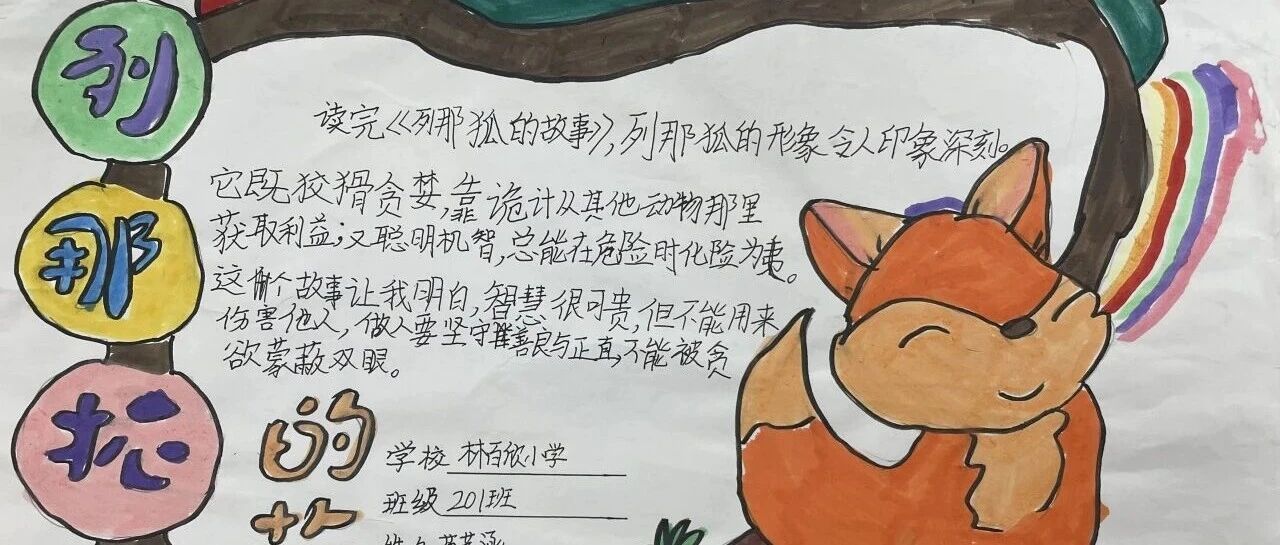 列
那
狐
的
读完《列那狐的故事》，列那狐的形象令人印象深刻。
它既狡猾贪婪，靠诡计从其他动物那里
获取利益；又聪明机智，总能在危险时化险为夷。
这个故事让我明白，智慧很可贵，但不能用来
伤害他人，做人要坚守善良与正直，不能被贪
欲蒙蔽双眼。
学校 林百欣小学
班级 201班